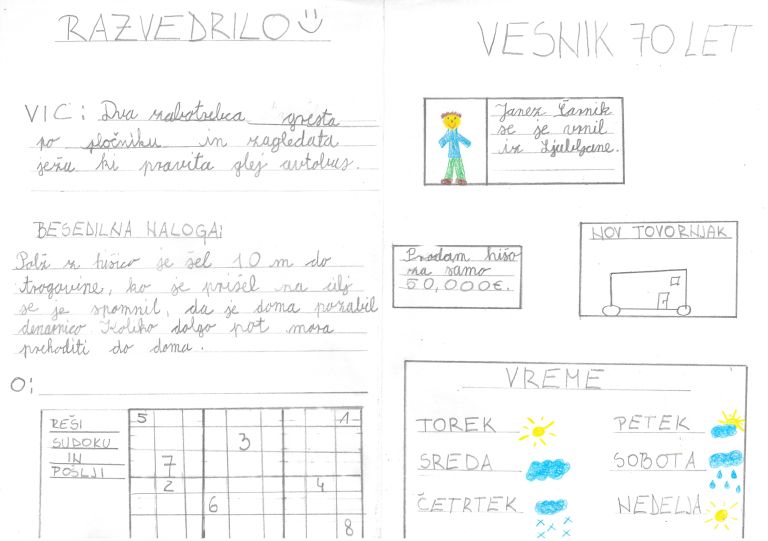 RAZVEDRILO
VIC: Dva zobotrebca gresta
po pločniku in zagledata
ježa ki pravita glej avtobus.
BESEDILNA NALOGA:
Polž z hišico je šel 10 m do
trogovine, ko je prišel na cilj
se je spomnil, da je doma pozabil
denarnico Koliko dolgo pot mora
prehoditi do doma.
O:
REŠI
SUDOKU
IN
POŠLJI
5 1
3
7
2 4
6
8
VESNIK 70 LET
Janez Čarnik
se je vrnil
iz Ljubljane.
Prodam hišo
za samo
50,000€.
NOV TOVORNJAK
VREME
TOREK
SREDA
ČETRTEK
PETEK
SOBOTA
NEDELJA